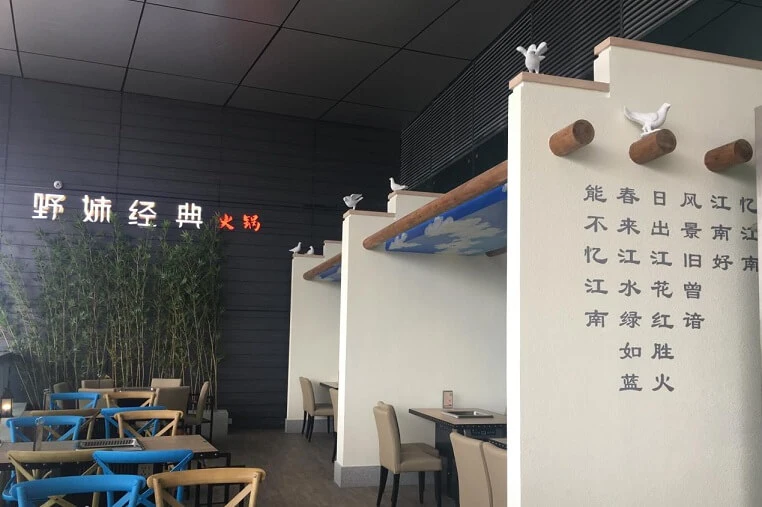 野妹经典火锅
忆江南
江南好
风景旧曾谙
日出江花红胜火
春来江水绿如蓝
能不忆江南